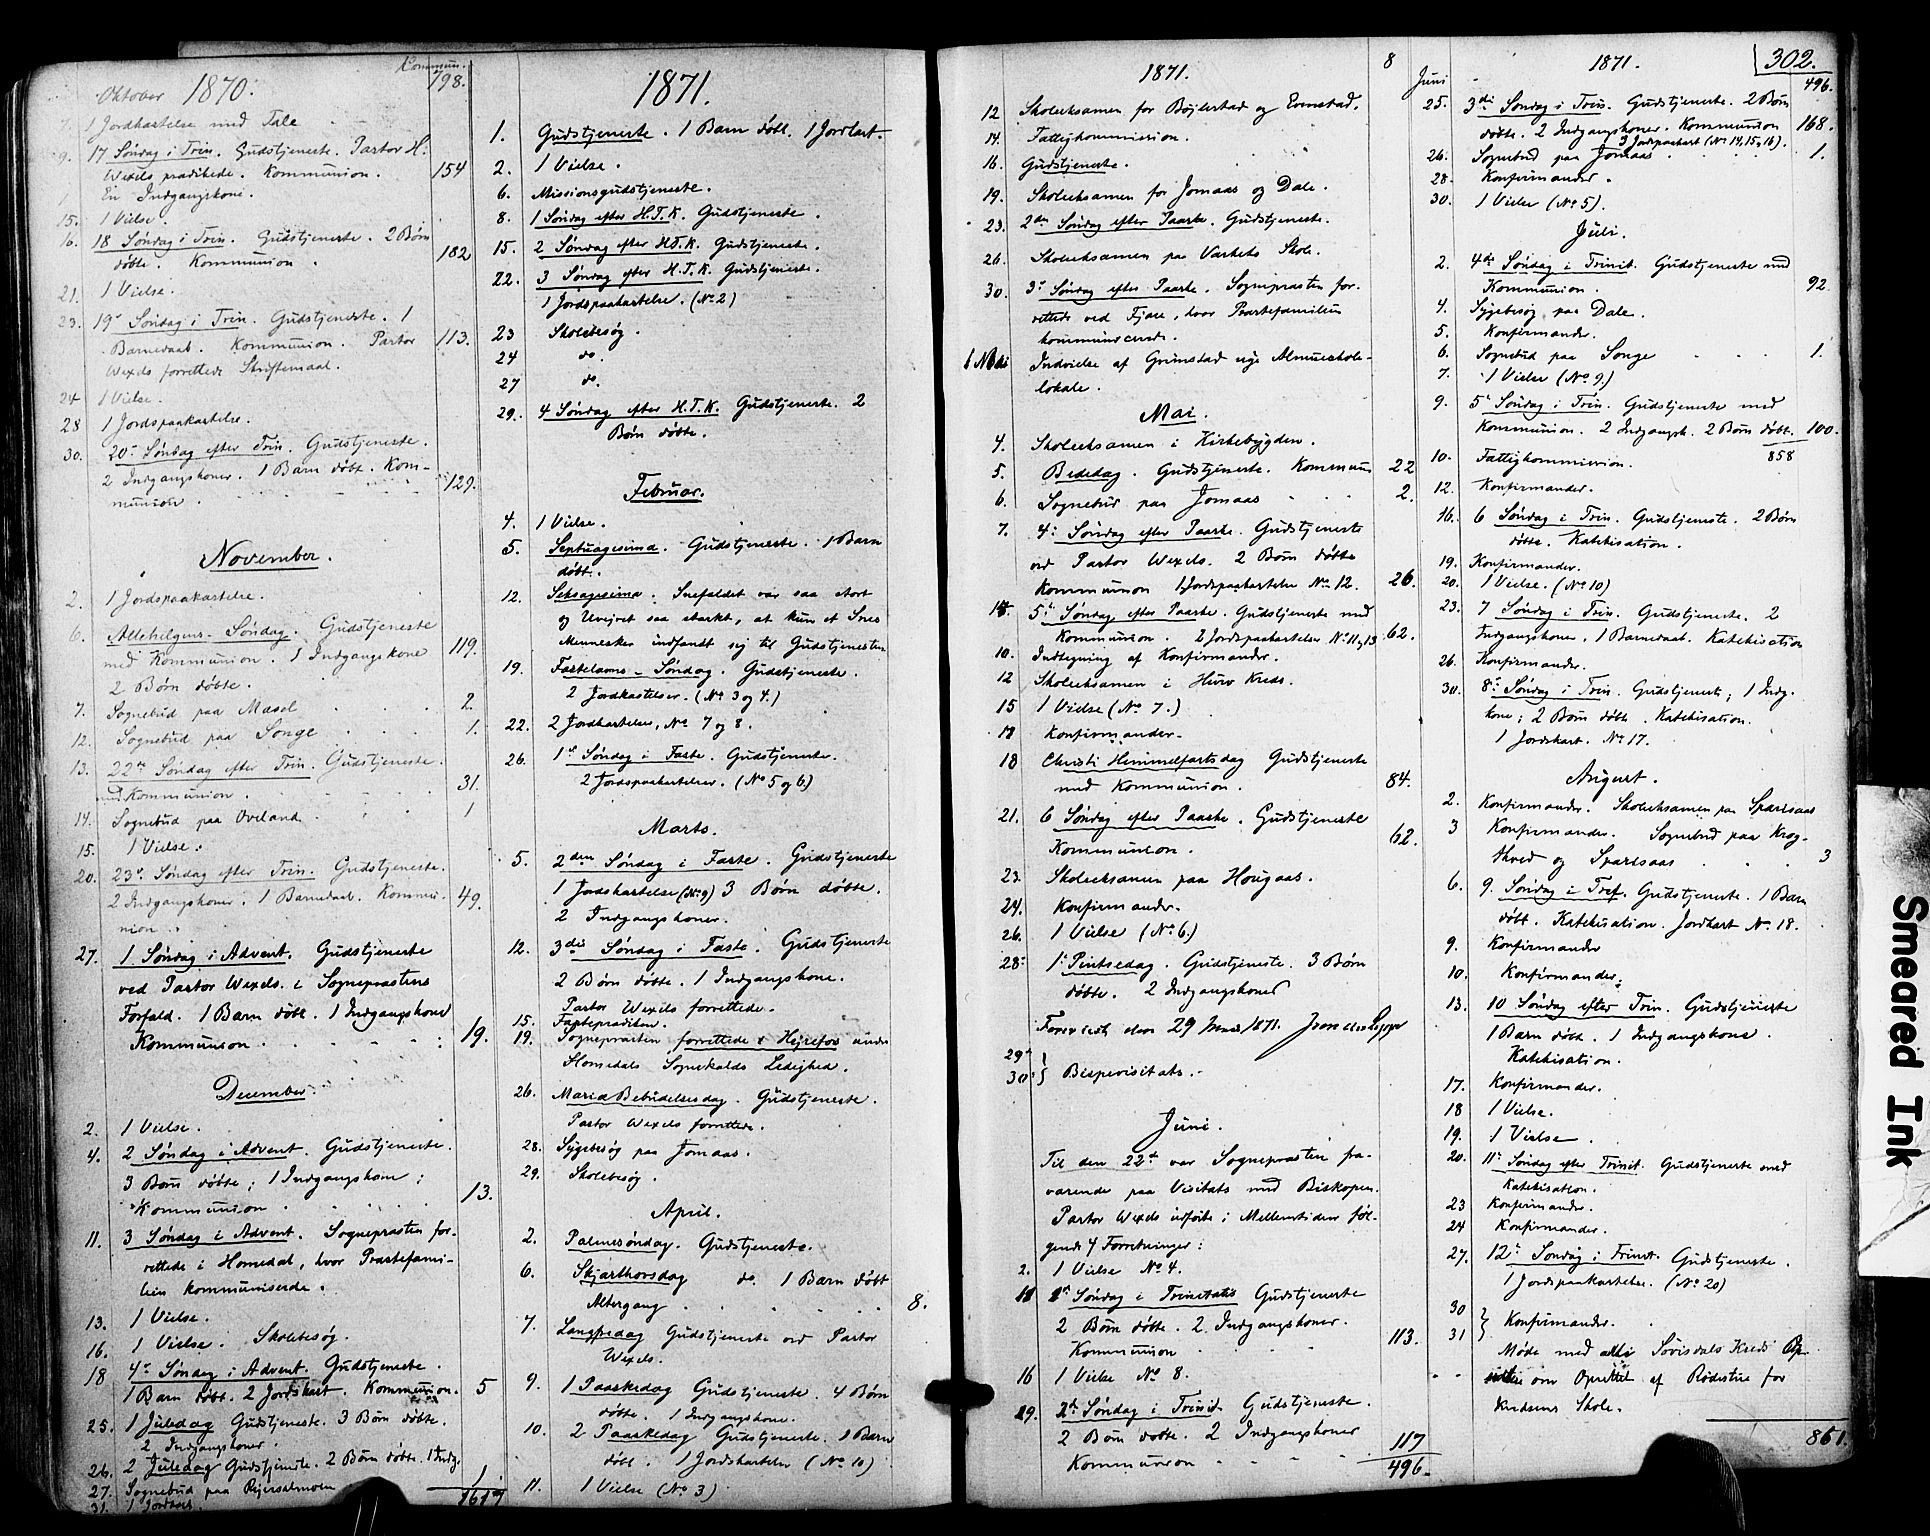 Kommun.
Oktober 1870. 798.
7. 1 Jordkastelse med Tale
9. 17 Søndag i Trin. Gudstjeneste. Pastor H.
Wexels prædikede. Kommunion. 154
En Indgangskone.
15. 1 Vielse.
16. 18 Søndag i Trin. Gudstjeneste. 2 Børn
døbte. Kommunion. 182
21. 1 Vielse.
23. 19de Søndag i Trin. Gudstjeneste. 1
Barnedaab. Kommunion. Pastor 113.
Wexels forrettede Skriftemaal.
24 1 Vielse.
28 1 Jordspaakastelse.
30. 20de Søndag efter Trin. Gudstjeneste.
2 Indgangskoner. 1 Barn døbt. Kom-
munion. 129.
November.
2. 1 Jordspaakastelse.
6. Allehelgens-Søndag. Gudstjeneste
med Kommunion. 1 Indgangskone 119.
2 Børn døbte.
7. Sognebud paa Masel 2.
12. Sognebud paa Songe 1.
13. 22de Søndag efter Trin. Gudstjeneste.
med Kommunion. 31.
14. Sognebud paa Oveland 1
15. 1 Vielse.
20. 23de Søndag efter Trin. Gudstjeneste.
2 Indgangskoner. 1 Barnedaab. Kommu- 49.
nion.
27. 1 Søndag i Advent. Gudstjeneste
ved Pastor Wexels i Sogneprestens
Forfald. 1 Barn døbt. 1 Indgangskone
Kommunion 19.
December.
2. 1 Vielse.
4. 2 Søndag i Advent. Gudstjeneste.
3 Børn døbte; 1 Indgangskone;
Kommunion 13.
11. 3 Søndag i Advent. Sognepræsten for-
rettede i Homedal, hvor Præstefami-
lien kommuniserede.
13. 1 Vielse.
16. 1 Vielse. Skolebesøg.
18 4de Søndag i Advent. Gudstjeneste.
1 Barn døbt. 2 Jordskast. Kommunion. 5
25. 1 Juledag Gudstjeneste. 3 Børn døbte.
2 Indgangskoner.
26. 2 Juledag Gudstjeneste. 2 Børn døbte. 1 Indg.
27. Sognebud paa 1
31. 1 Jordkast. 1617
1871.
1. Gudstjeneste. 1 Barn døbt. 1 Jordkast.
2. 1 Vielse.
6. Missionsgudstjeneste.
8. 1 Søndag efter H.T.K. Gudstjeneste.
15. 2 Søndag efter H.T.K. Gudstjeneste.
22. 3 Søndag efter H.T.K. Gudstjeneste.
1 Jordspaakastelse. (No 2)
23 Skolebesøg
24 do.
27 do.
29. 4 Søndag efter H.T.K. Gudstjeneste. 2
Børn døbte.
Februar.
4. 1 Vielse.
5. Septuagesima. Gudstjeneste. 1 Barn
døbt.
12. Seksagesima. Snefaldet var saa stort
og Uveiret saa stærkt, at kun et Snes
Mennesker indfandt sig til Gudstjenesten
19. Fastelavns-Søndag. Gudstjeneste.
2 Jordkastelser. (No 3 og 4.)
22. 2 Jordkastelser, No 7 og 8.
26. 1ste Søndag i Faste. Gudstjeneste.
2 Jordspaakastelser. (No 5 og 6)
Marts.
5. 2den Søndag i Faste. Gudstjeneste
1 Jordskastelse (No 9) 3 Børn døbte.
2 Indgangskoner.
12. 3die Søndag i Faste. Gudstjeneste
2 Børn døbte. 1 Indgangskone.
Pastor Wexels forrettede.
15. Fasteprædiken.
19. Sognepræsten forrettede i Høirefos under
Homedals Sognekalds Ledighed.
26. Mariæ Bebudelsesdag. Gudstjeneste.
Pastor Wexels forrettede.
28. Sygebesøg paa Jomaas.
29. Skolebesøg.
April.
2. Palmesøndag. Gudstjeneste.
6. Skjærthorsdag do. 1 Barn døbt
Altergang 8.
7. Langfredag Gudstjeneste ved Pastor
Wexels.
9. 1 Paaskedag Gudstjeneste. 4 Børn
døbte. 1 Indgangskone.
10. 2 Paaskedag Gudstjeneste. 1 Barn
døbt. 1 Jordskastelse (No 10)
11. 1 Vielse (No 3)
1871. 8
12 Skoleeksamen for Bøjlestad og Evnestad.
14. Fattigkommission.
16. Gudstjeneste.
19. Skoleeksamen for Jomaas og Dale.
23. 2den Søndag efter Paaske. Gudstjeneste.
26. Skoleeksamen paa Væskets Skole.
30. 3de Søndag efter Paaske. Sognepræsten for-
rettede ved Fjære, hvor Præstefamilien
kommunicerede.
1 Mai Indvielse af Grimstad nye Almueskole-
lokale.
Mai.
4. Skoleeksamen i Kirkebygden.
5. Bededag. Gudstjeneste. Kommun 22
6. Sognebud paa Jomaas 2.
7. 4de Søndag efter Paaske. Gudstjeneste
ved Pastor Wexels. 2 Børn døbte
Kommunion 1 Jordspaakastelse No. 12. 26.
14. 5te Søndag efter Paaske. Gudstjeneste med
Kommunion. 2 Jordspaakastelser No 11 og 13 62.
10. Indtegning af Konfirmander.
12 Skoleeksamen i Kreds.
15 1 Vielse (No 7.)
17 Konfirmander.
18 Christi Himmelfartsdag Gudstjeneste
med Kommunion. 84.
21. 6 Søndag efter Paaske. Gudstjeneste
Kommunion. 62.
23. Skoleeksamen paa Hougaas.
24. Konfirmander.
26. 1 Vielse (No 6.)
28. 1ste Pintsedag. Gudstjeneste. 3 Børn
døbte. 2 Indgangskoner
Forevist den 29 Mai 1871.
29de
30 } Bispevisitats.
Juni.
Til den 22de var Sognepræsten fra-
værende paa Visitats med Biskopen.
Pastor Wexels udførte i Mellemtiden føl-
gende 4 Forretninger:
2. 1 Vielse No 4.
11 1ste Søndag i Trinitatis Gudstjeneste
2 Børn døbte. 2 Indgangskoner.
Kommunion 113.
16 1 Vielse No 8.
19. 2den Søndag i Trinit. Gudstjeneste.
2 Børn døbte. 2 Indgangskoner
Kommunion 117
496.
1871. 302.
Juni 496.
25. 3die Søndag i Trin. Gudstjeneste. 2 Børn
døbte. 2 Indgangskoner. Kommunion 168.
3 Jordpaakast (No 14, 15 og 16).
26. Sognebud paa Jomaas 1.
28. Konfirmander.
30. 1 Vielse (No 5).
Juli.
2. 4de Søndag i Trinit. Gudstjeneste med
Kommunion. 92.
4. Sygebesøg paa Dale.
5. Konfirmander.
6. Sognebud paa Songe 1.
7. 1 Vielse (No 9.)
9. 5te Søndag i Trin. Gudstjeneste med
Kommunion. 2 Indgangsk. 2 Børn døbt. 100.
858
10. Fattigkommission.
12. Konfirmander.
16. 6 Søndag i Trin. Gudstjeneste. 2 Børn
døbte. Katekisation.
19. Konfirmander.
20. 1 Vielse. (No 10)
23. 7 Søndag i Trin. Gudstjeneste. 2
Indgangskoner, 1 Barnedaab. Katekisation
26. Konfirmander.
30. 8de Søndag i Trin. Gudstjeneste; 1 Indg.
kone; 2 Børn døbte. Katekisation.
1 Jordskast. No 17.
August.
2. Konfirmander. Skoleeksamen paa Sparsaas
3 Konfirmander. Sognebud paa Krog-
 og Sparsaas 3
6. 9. Søndag i Tref. Gudstjeneste. 1 Barn
døbt. Katekisation. Jordkast No. 18.
9. Konfirmander
10. Konfirmander.
13. 10 Søndag efter Trin. Gudstjeneste
1 Barn døbt. 1 Indgangskone.
Katekisation.
17. Konfirmander.
18 1 Vielse.
19. 1 Vielse.
20. 11te Søndag efter Trinit. Gudstjeneste med
Katekisation.
23 Konfirmander.
24 Konfirmander.
27. 12te Søndag i Trinit. Gudstjeneste.
1 Jordspaakastelse. (No 20)
30
31 } Konfirmander.
Møde med Kreds
om Oprettel af for
Skole.
861.
Smeared Ink